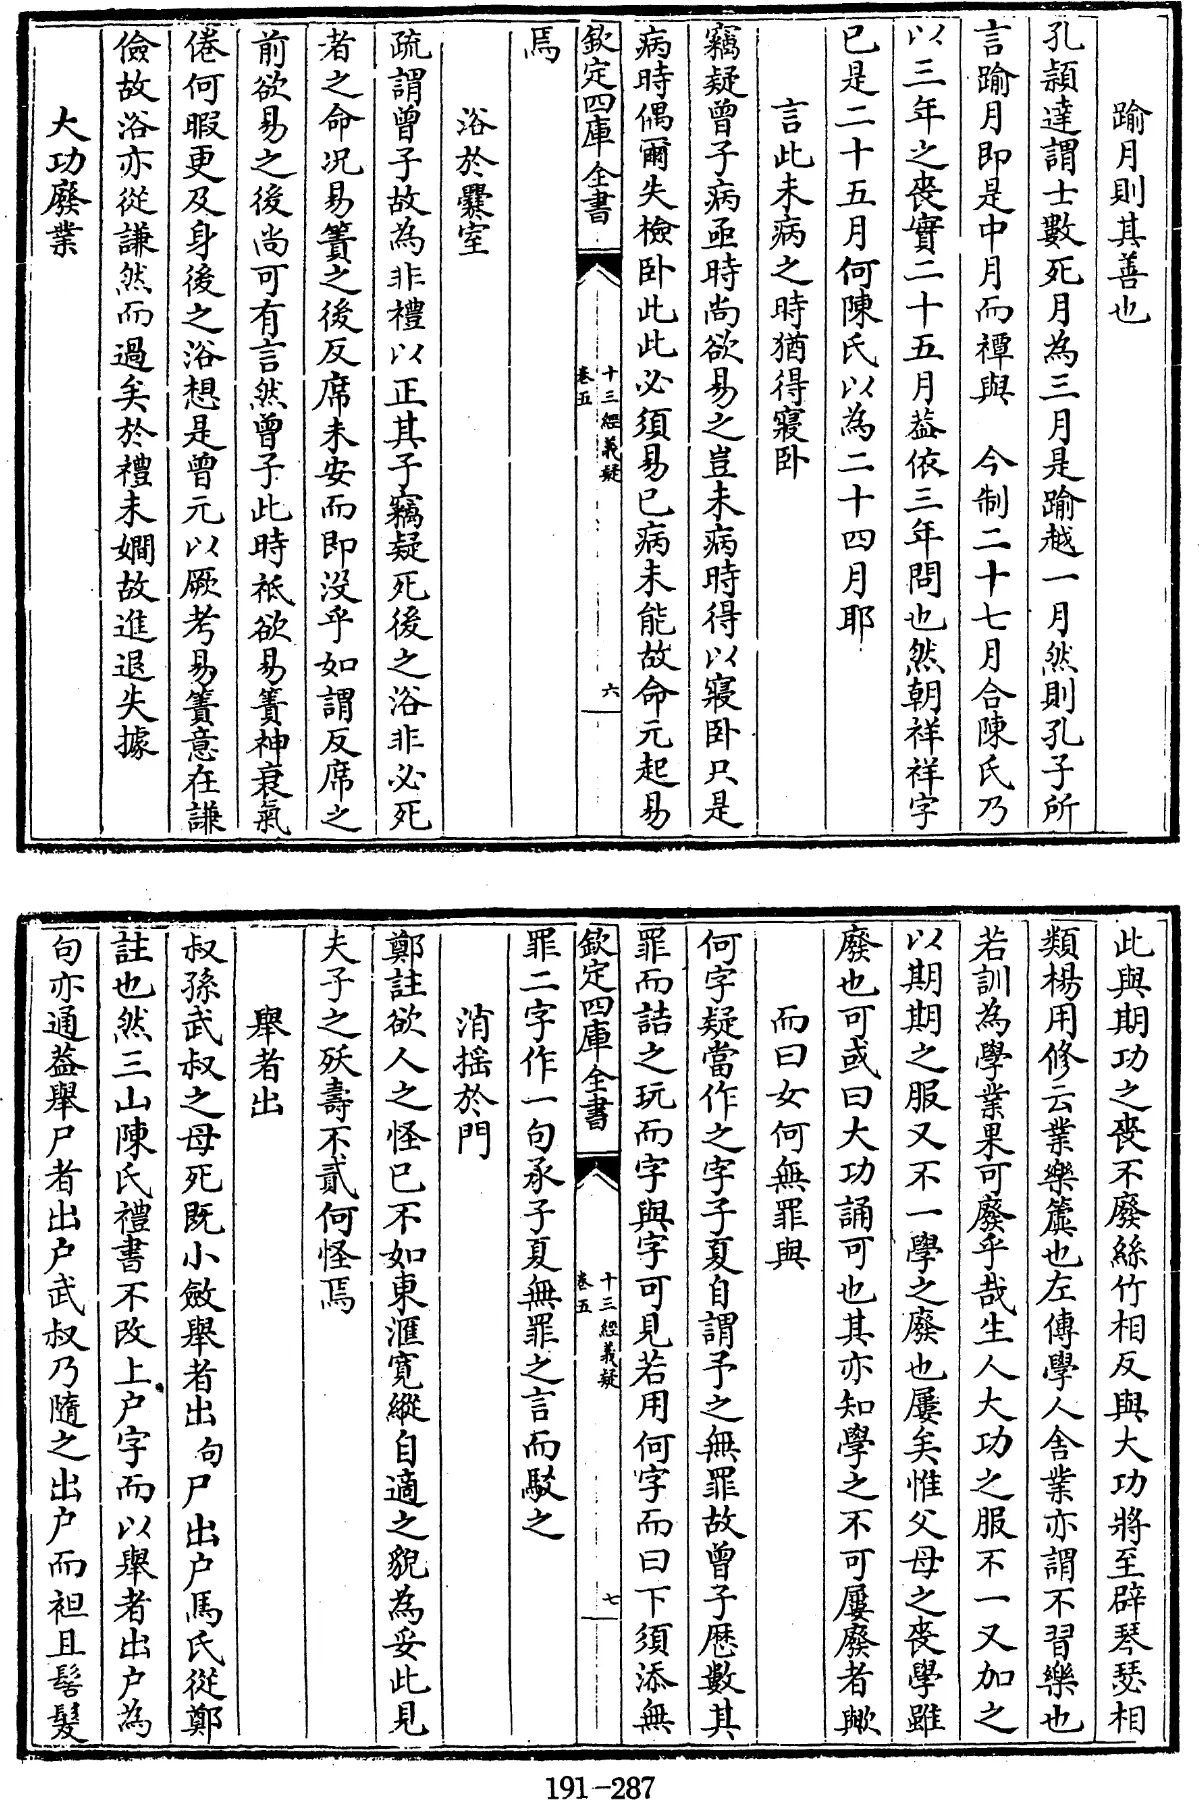 踰月則其善也
孔頴達謂士數死月為三月是踰越一月然則孔子所
言踰月即是中月而禫與　今制二十七月合陳氏乃
以三年之喪實二十五月葢依三年問也然朝祥祥字
已是二十五月何陳氏以為二十四月耶
言此未病之時猶得寢卧
竊疑曾子病亟時尚欲易之豈未病時得以寢卧只是
病時偶爾失檢卧此此必須易已病未能故命元起易
欽定四庫全書
十三經義疑
卷五
六
焉
浴於爨室
疏謂曾子故為非禮以正其子竊疑死後之浴非必死
者之命况易簀之後反席未安而即沒乎如謂反席之
前欲易之後尚可有言然曾子此時祗欲易簀神衰氣
倦何暇更及身後之浴想是曾元以厥考易簀意在謙
儉故浴亦從謙然而過矣於禮未嫺故進退失據
大功廢業
此與期功之喪不廢絲竹相反與大功將至辟琴瑟相
類楊用修云業樂簴也左傳學人舍業亦謂不習樂也
若訓為學業果可廢乎哉生人大功之服不一又加之
以期期之服又不一學之廢也屢矣惟父母之喪學雖
廢也可或曰大功誦可也其亦知學之不可屢廢者歟
而曰女何無罪與
何字疑當作之字子夏自謂予之無罪故曾子歷數其
罪而詰之玩而字與字可見若用何字而曰下須添無
欽定四庫全書
十三經義疑
卷五
七
罪二字作一句承子夏無罪之言而駁之
消摇於門
鄭註欲人之怪已不如東滙寛縱自適之貌為妥此見
夫子之殀壽不貳何怪焉
舉者出
叔孫武叔之母死既小斂舉者出句尸出户馬氏從鄭
註也然三山陳氏禮書不改上户字而以舉者出户為
句亦通葢舉尸者出户武叔乃隨之出户而袒且髻髮
191-287